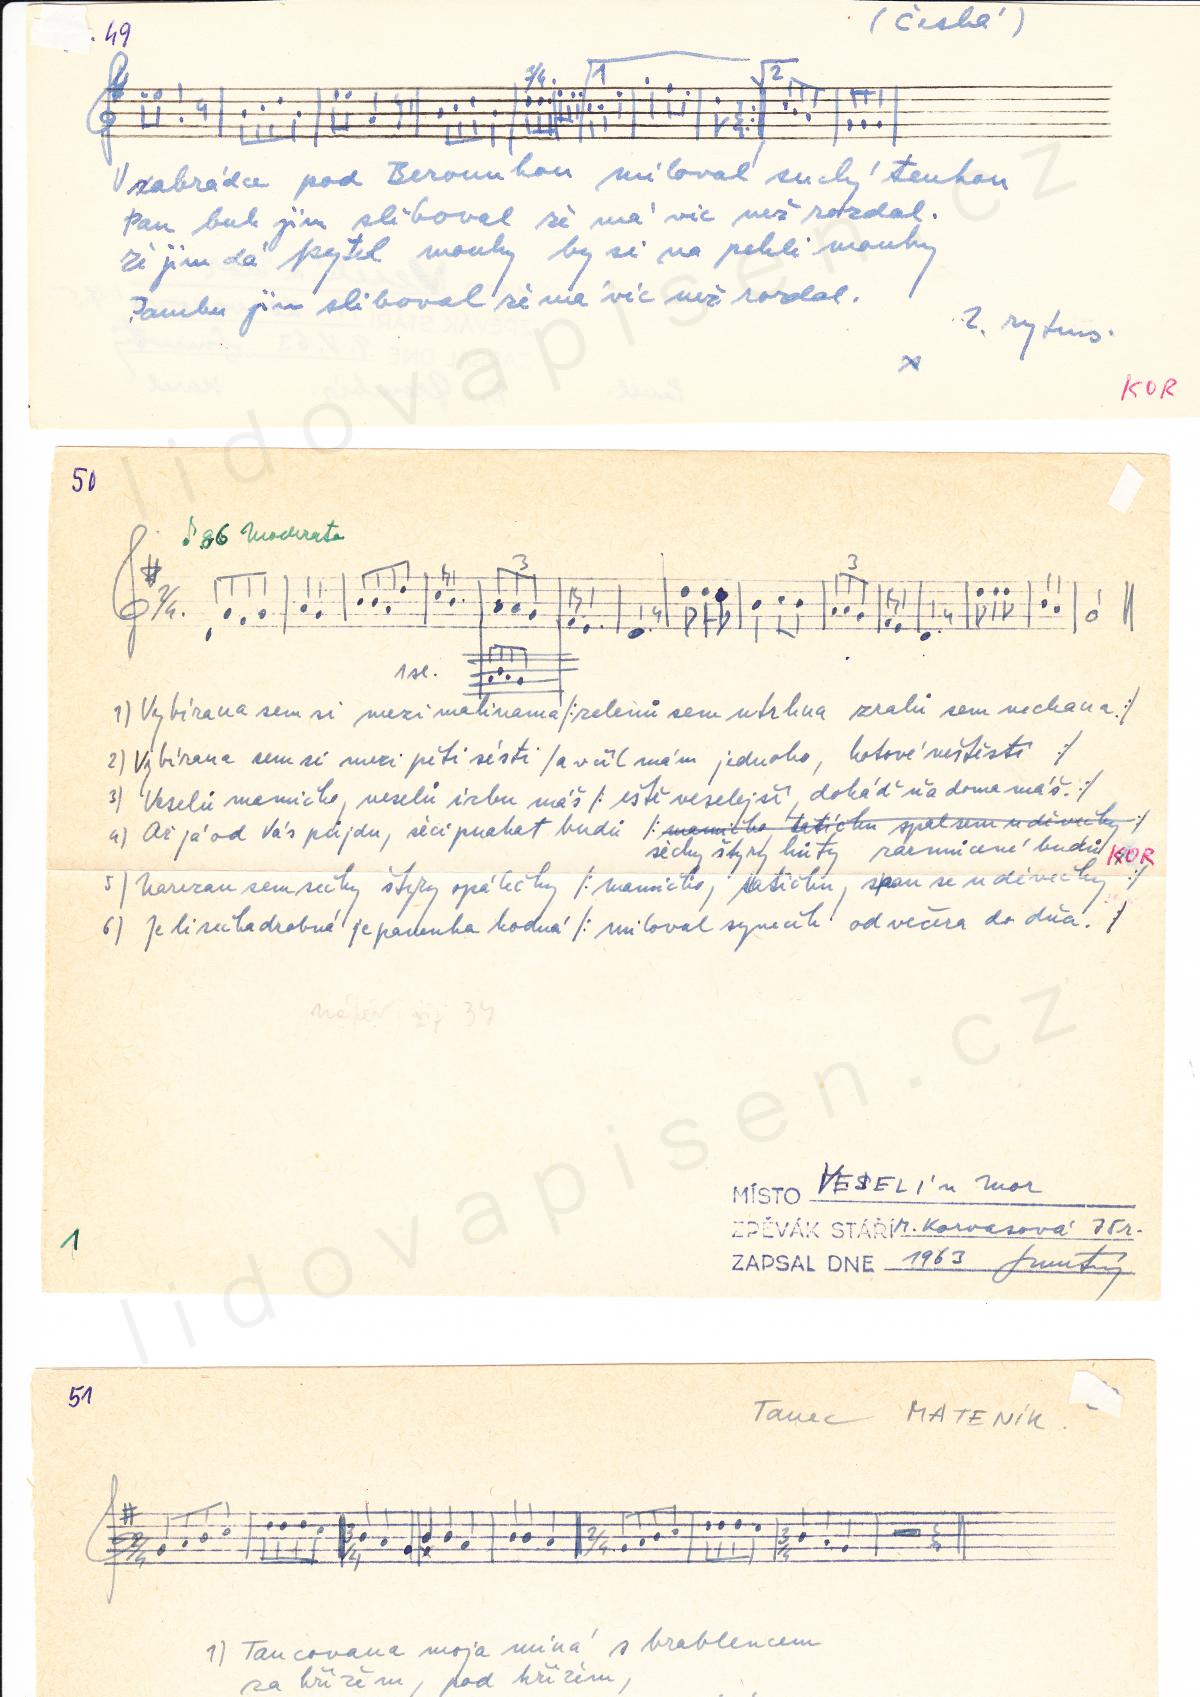 49
(Česká)
2/4. 1 2
V zahrádce pod Berounkou miloval suchý tenkou
Pan buh jim sliboval že má víc než rozdal.
že jim dá pytel mouky by si na pekli mouky
Pambu jim sliboval že má víc než rozdal.
2. rytmus.
x
KOR
50
♩ 86 Moderato
2/4. 3 3
1se.
1) Vybírana sem si mezi malinama /: zelenú sem utrhna zralú sem nechana :/
2) Vybírana sem si mezi pěti šésti / a včil mám jednoho, hotové neštěstí :/
3) Veselú mamičko, veselú izbu máš /: eště veselejší, dokáď ňa doma máš. :/
4) Až já od Vás půjdu, séci puakat budú /: mamičko, tatíčku, spal sem u děvečky :/
sécky štyry kúty zarmúcené budú
KOR
5) narezan sem secky štyry opálečky /: mamičko, tatíčku, span se u děvečky :/
6) Je li secha drobná je panenka hodná /: miloval synečk od večera do dňa. :/
nápěv 34
1
MÍSTO VESELÍ n Mor
ZPĚVÁK STÁŘÍ M. Korvasová 75 r.
ZAPSAL DNE 1963
51
Tanec MATENÍK.
2/4 3/4 2/4 3/4
1) Tancovana moja miná s brablencem
za křížem, pod křížem,
lidovapisen.cz
lidovapisen.cz